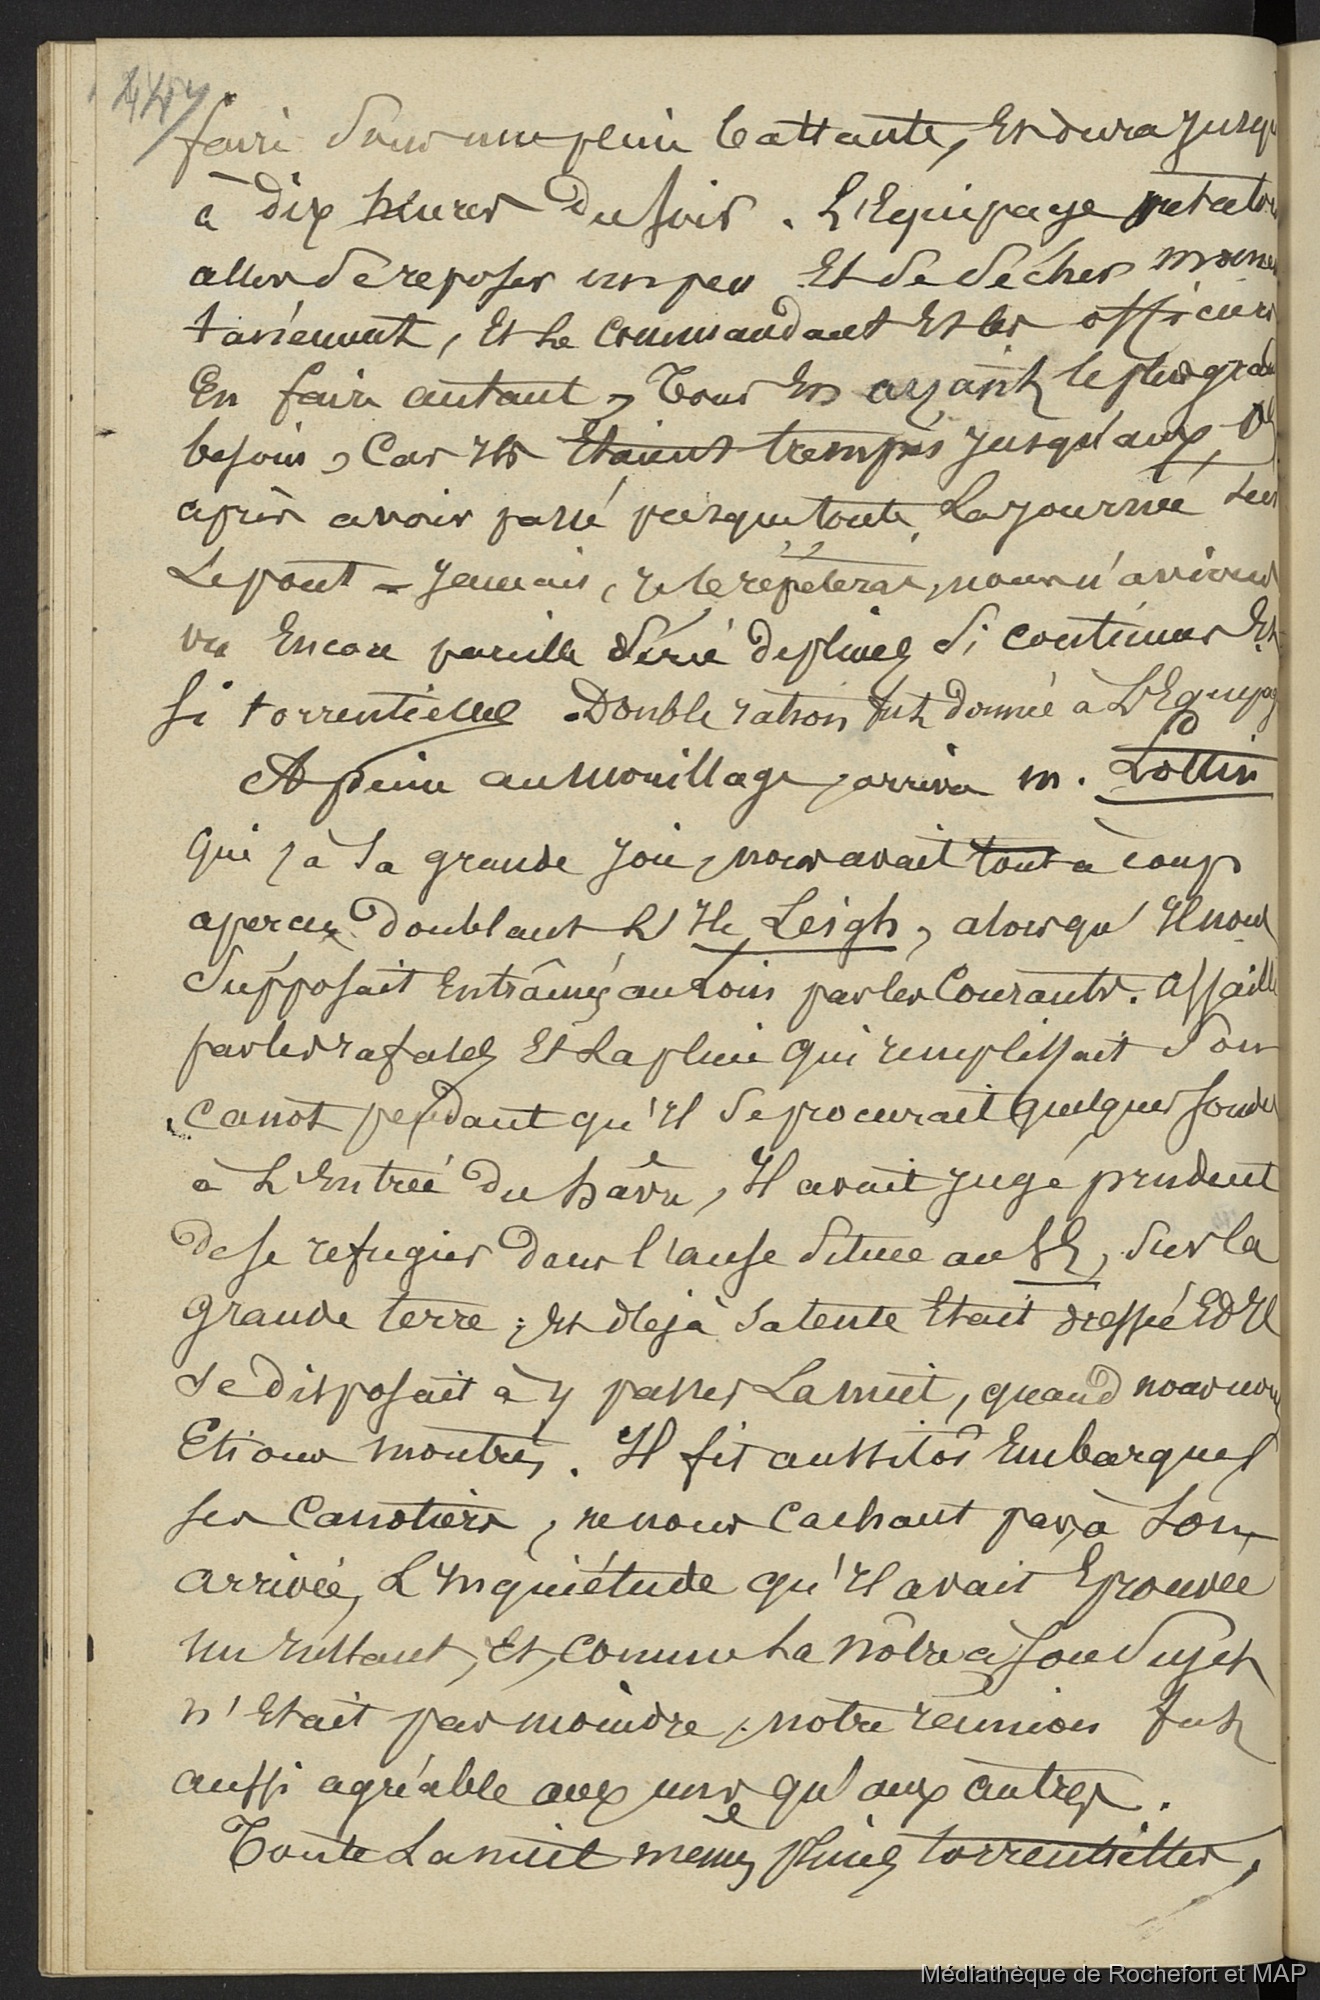 447
faire sous une pluie battante, Et dura jusqu
à dix heures du soir. L'Equipage put alors
aller se reposer un peu Et se sécher momen
tanément, Et Le Commandant Et les officiers
En faire autant, Tous En ayant le plus grand
besoin, Car Ils Etaient trempés jusqu'aux Os
après avoir passé presque toute La journée sur
Le pont = Jamais, je le répéterai, nous n'avions
vu Encore pareille série de pluies si continues Et
si torrentielles. Double ration fut donnée à L'Equipag
A peine au mouillage, arriva m. Lottin
qui, à sa grande joie, nous avait tout à coup
aperçus doublant L'Ile Leigh, alors qu'Il nous
supposait Entraînés au Loin par les Courants. Assailli
par les rafales Et La pluie qui remplissait son
Canot pendant qu'Il se procurait quelques sondes
à L'Entrée du hâvre, Il avait jugé prudent
de se refugier dans l'anse située au SE, sur la
grande terre ; Et déjà sa tente Etait dressée Et Il
se disposait à y passer La nuit, quand nous nous
Etions montrés. Il fit aussitôt Embarquer
ses Canotiers, ne nous Cachant pas, à son
arrivée, L'Inquiétude qu'Il avait Eprouvée
un Instant, Et, Comme La nôtre à son sujet
n'Etait pas moindre, notre réunion fut
aussi agréable aux uns qu'aux autres.
Toute La nuit mêmes pluies torrentielles,
Médiathèque de Rochefort et MAP